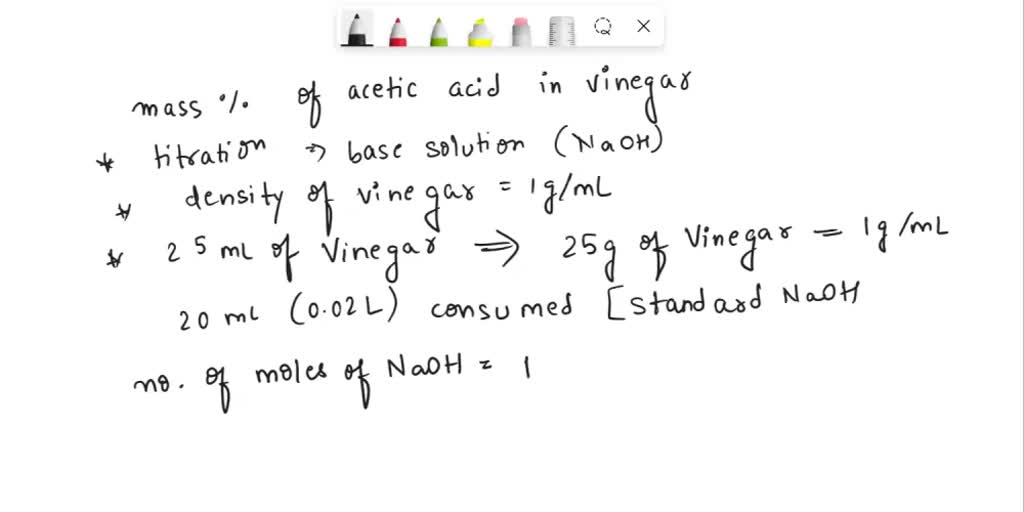 mass % of acetic acid in vinegar
* titration ⇒ base solution (NaOH)
* density of vinegar = 1g/mL
* 25 mL of Vinegar ⇒ 25g of Vinegar = 1g/mL
20 mL (0.02L) consumed [standard NaOH
no. of moles of NaOH = 1